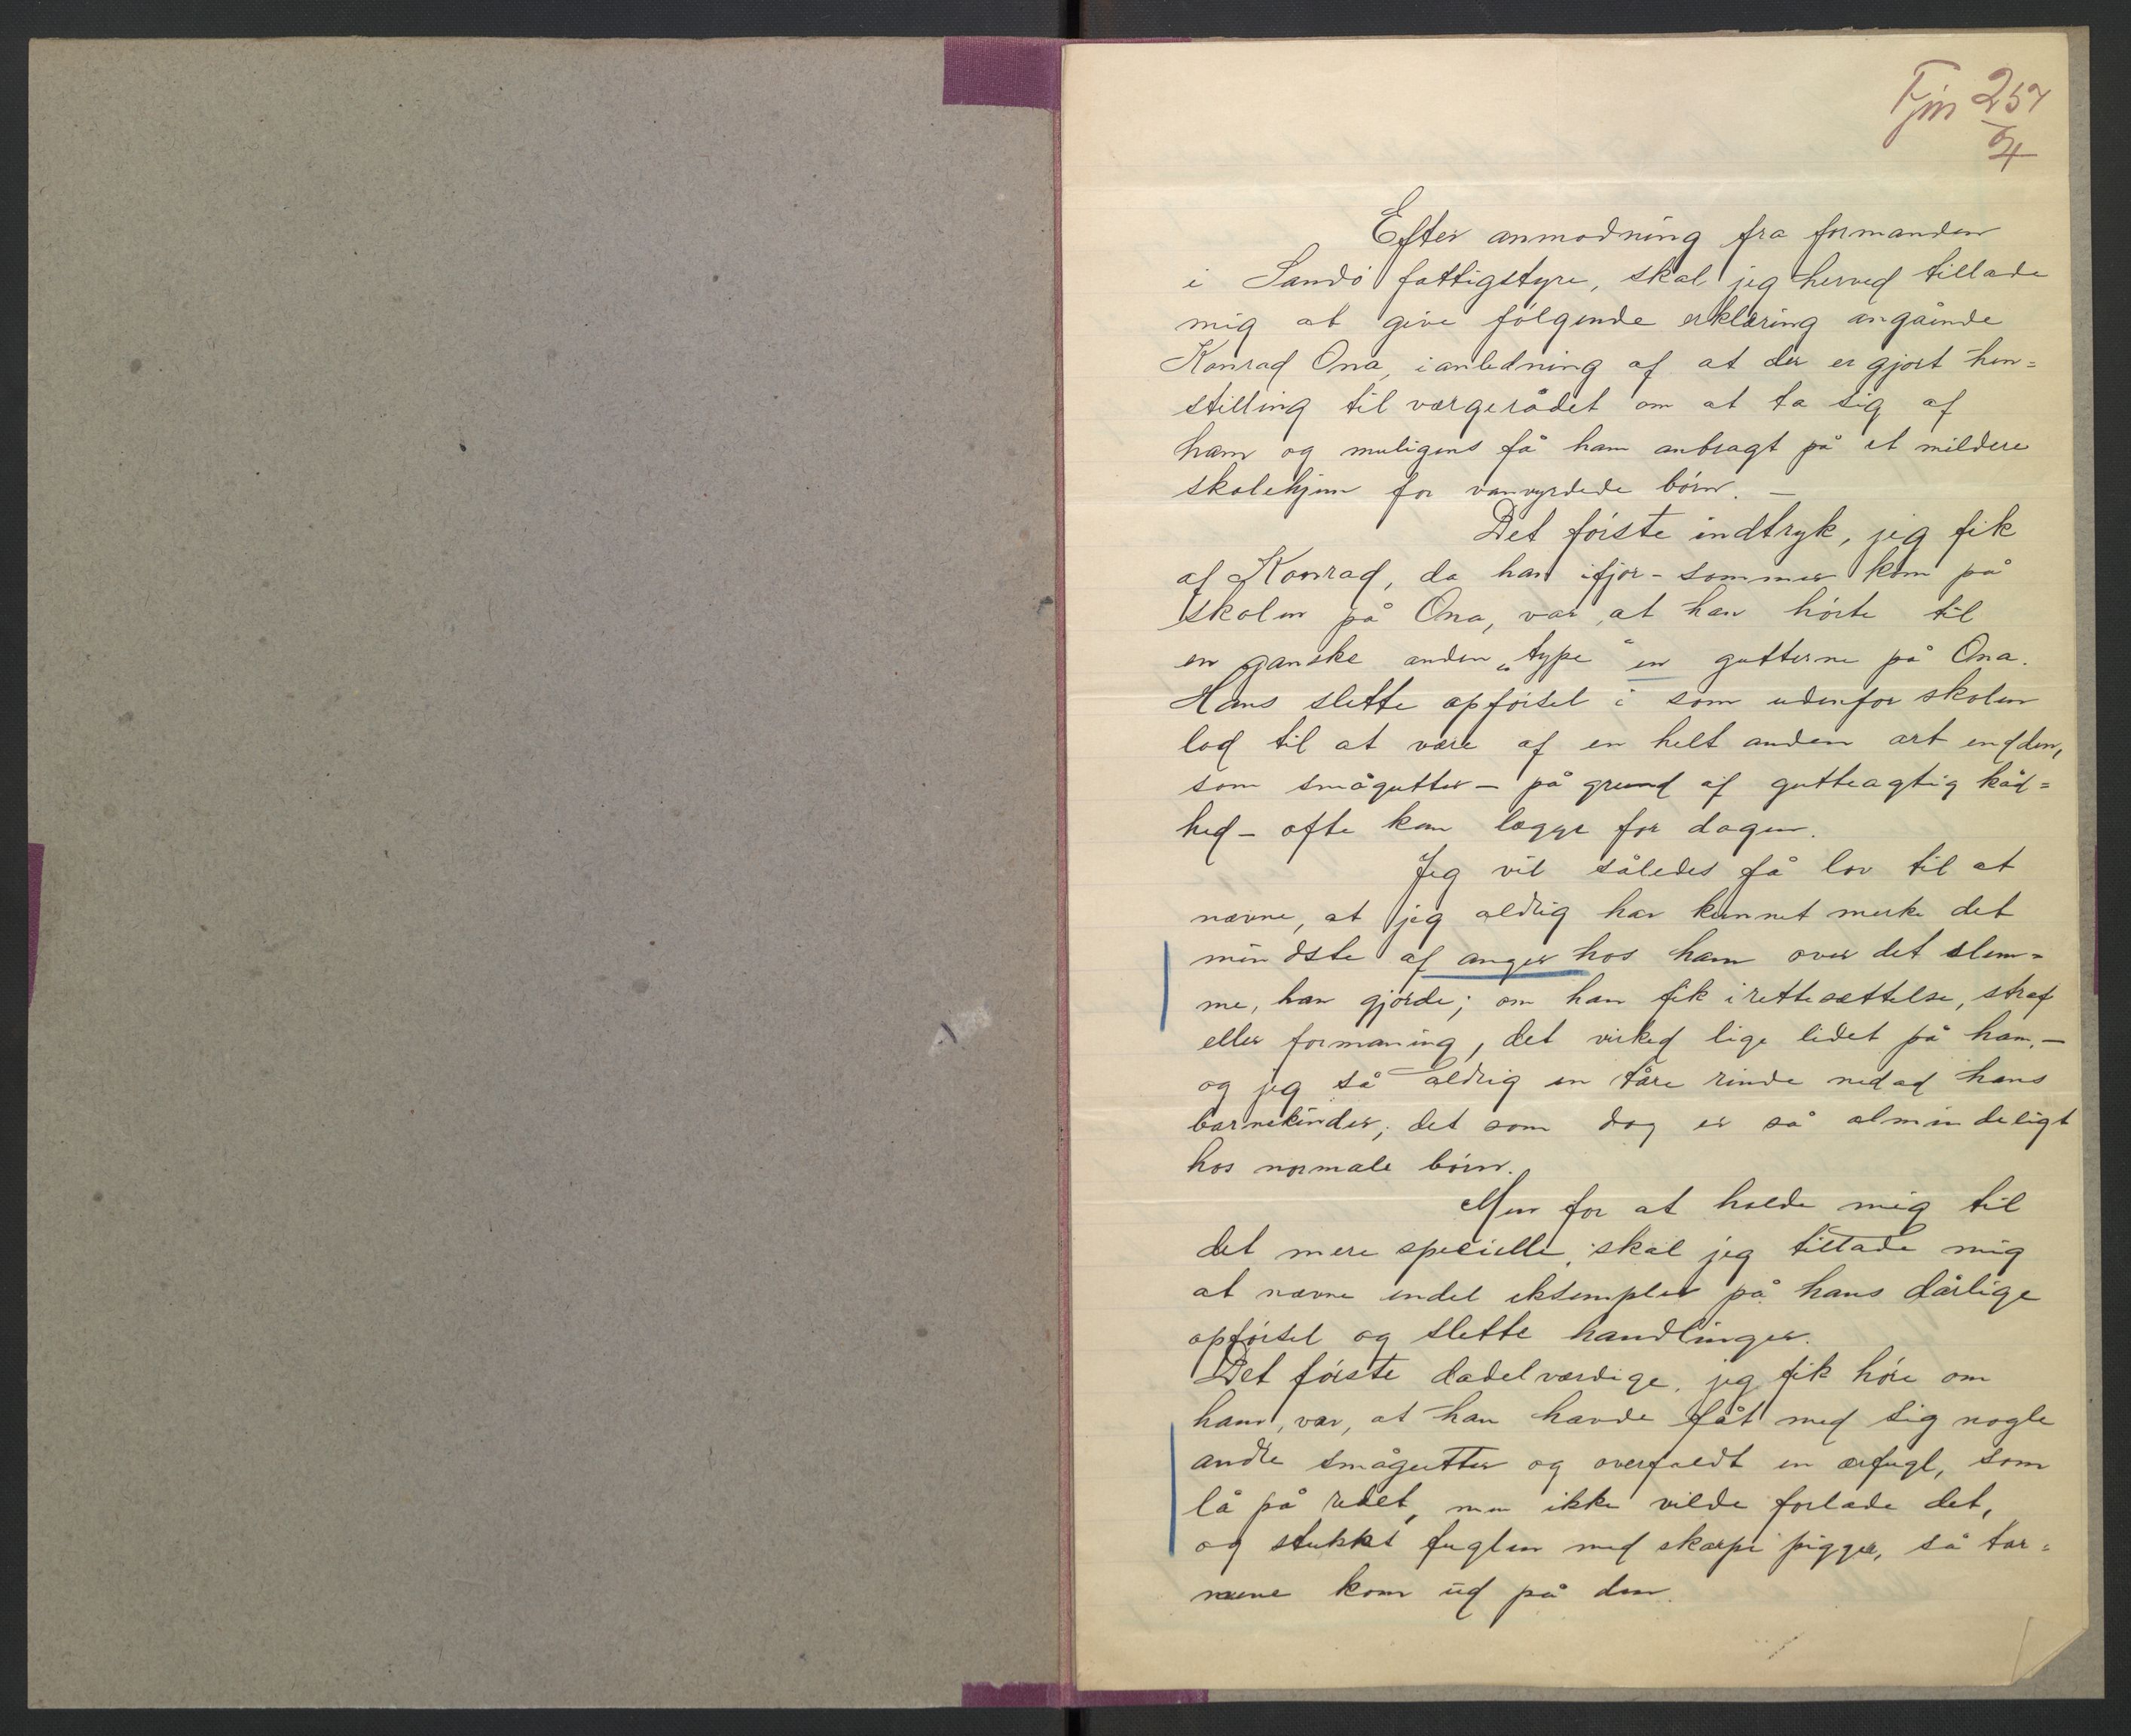 Fjm 257
6/4
Efter anmodning fra formanden
i Sandø fattigstyre, skal jeg herved tillade
mig at give følgende erklæring angående
Konrad Ona, i anledning af at der er gjort hen=
stilling til værgerådet om at ta sig af
ham og muligens få ham anbragt på et mildere
skolehjem for vanvyrdede børn. —
Det første indtryk, jeg fik
af Konrad, da han ifjor-sommer kom på
skolen på Ona, var, at han hørte til
en ganske anden „type“ en gutterne på Ona.
Hans slette opførsel i som udenfor skolen
lod til at være af en helt anden art end den,
som smågutter — på grund af gutteagtig kåd=
hed — ofte kan lægge for dagen.
Jeg vil således få lov til at
nævne, at jeg aldrig har kunnet merke det
mindste af anger hos ham over det slem=
me, han gjorde; om han fik irettesættelse, straf
eller formaning, det virked lige lidet på ham, —
og jeg så aldrig en tåre rinde nedad hans
barnekinder; det som dog er så almindeligt
hos normale børn.
Men for at holde mig til
det mere specielle, skal jeg tillade mig
at nævne endel eksempler på hans dårlige
opførsel og slette handlinger.
Det første dadelværdige, jeg fik høre om
ham, var, at han havde fåt med sig nogle
andre smågutter og overfaldt en ærfugl, som
lå på redet, men ikke vilde forlade det,
og stukket fuglen med skarpe pigger, så tar=
mene kom ud på den.